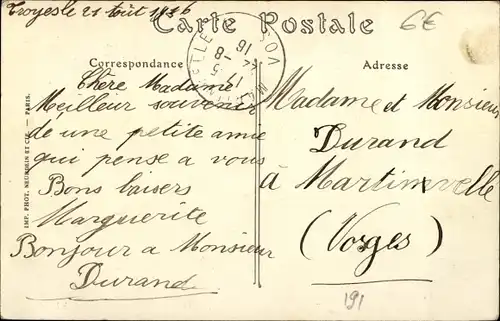 Troyes le 21 Août 1916
Carte Postale
6€
Correspondance
Adresse
Chère Madame
Meilleur souvenir
de une petite amie
qui pense a vous
Bons baisers
Marguerite
Bonjour a Monsieur
Durand
Madame et Monsieur
Durand
à Martinvelle
(Vosges)
191
IMP. PHOT. NEURDEIN ET CIE. — PARIS.